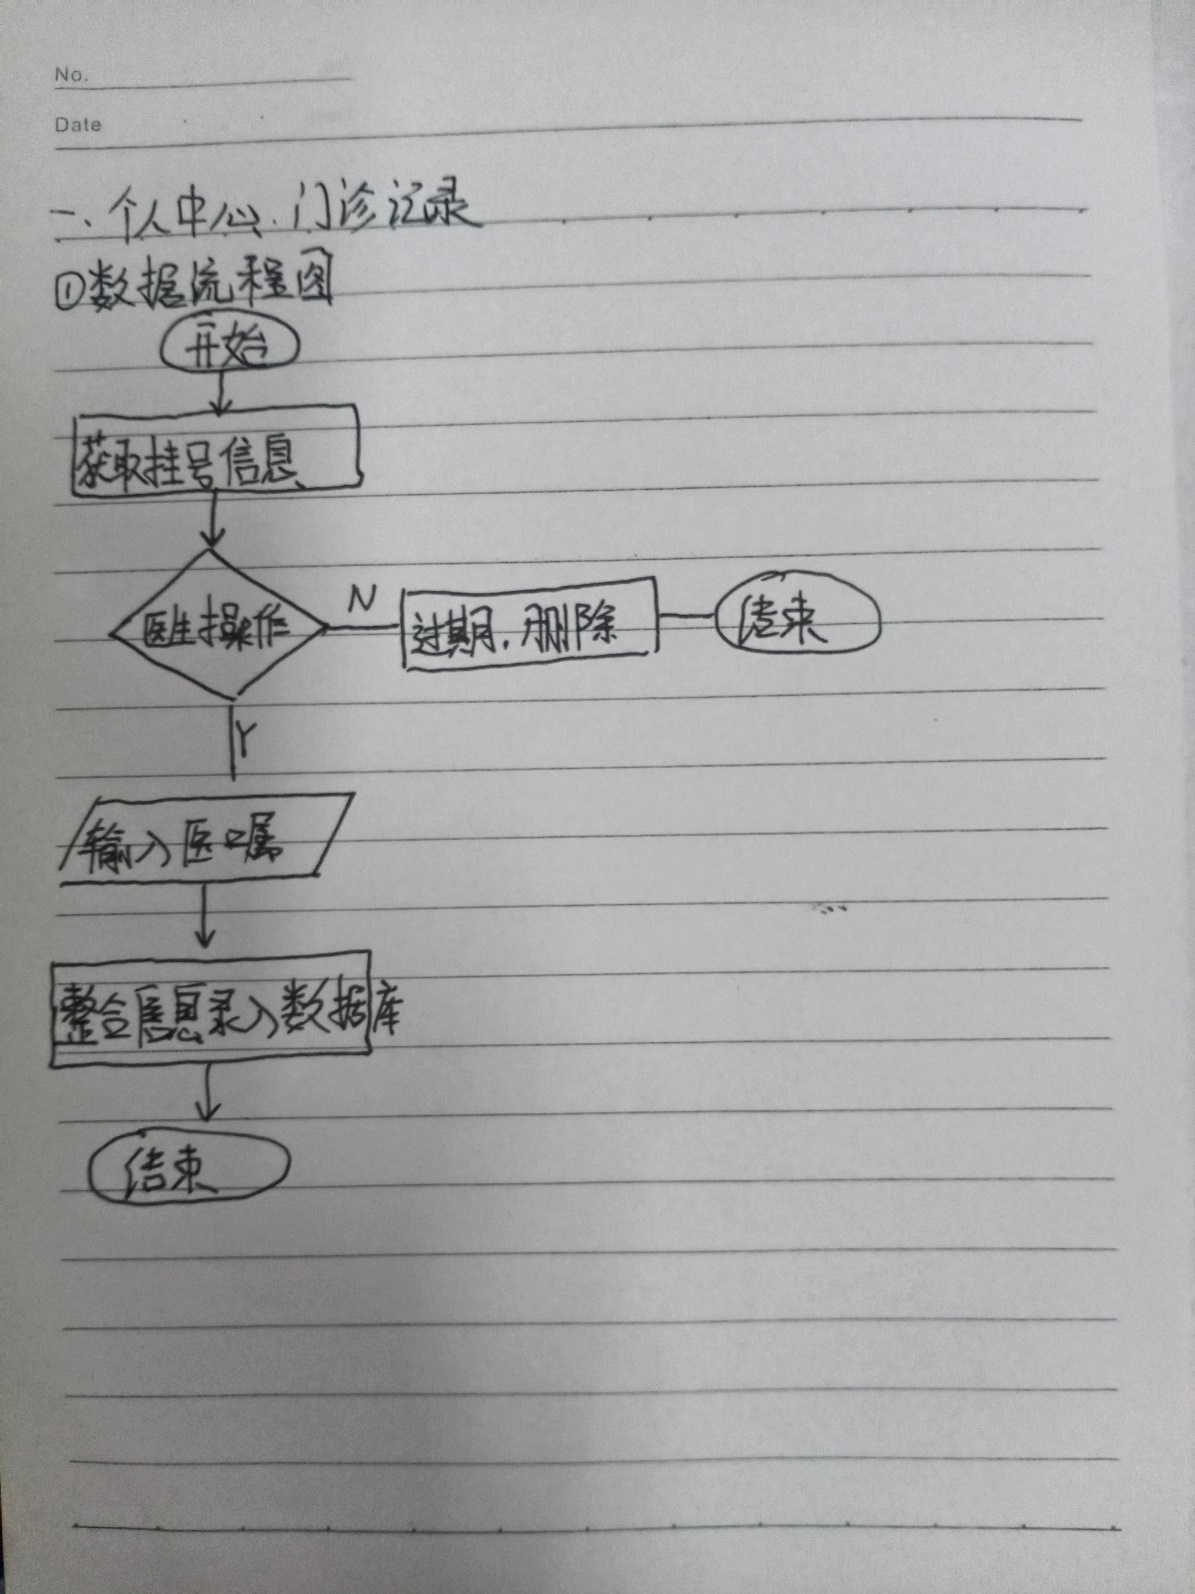 No.
Date
一、个人中心、门诊记录
①数据流程图
开始
获取挂号信息
医生操作
N
过期、删除
结束
Y
输入医嘱
整合信息录入数据库
结束